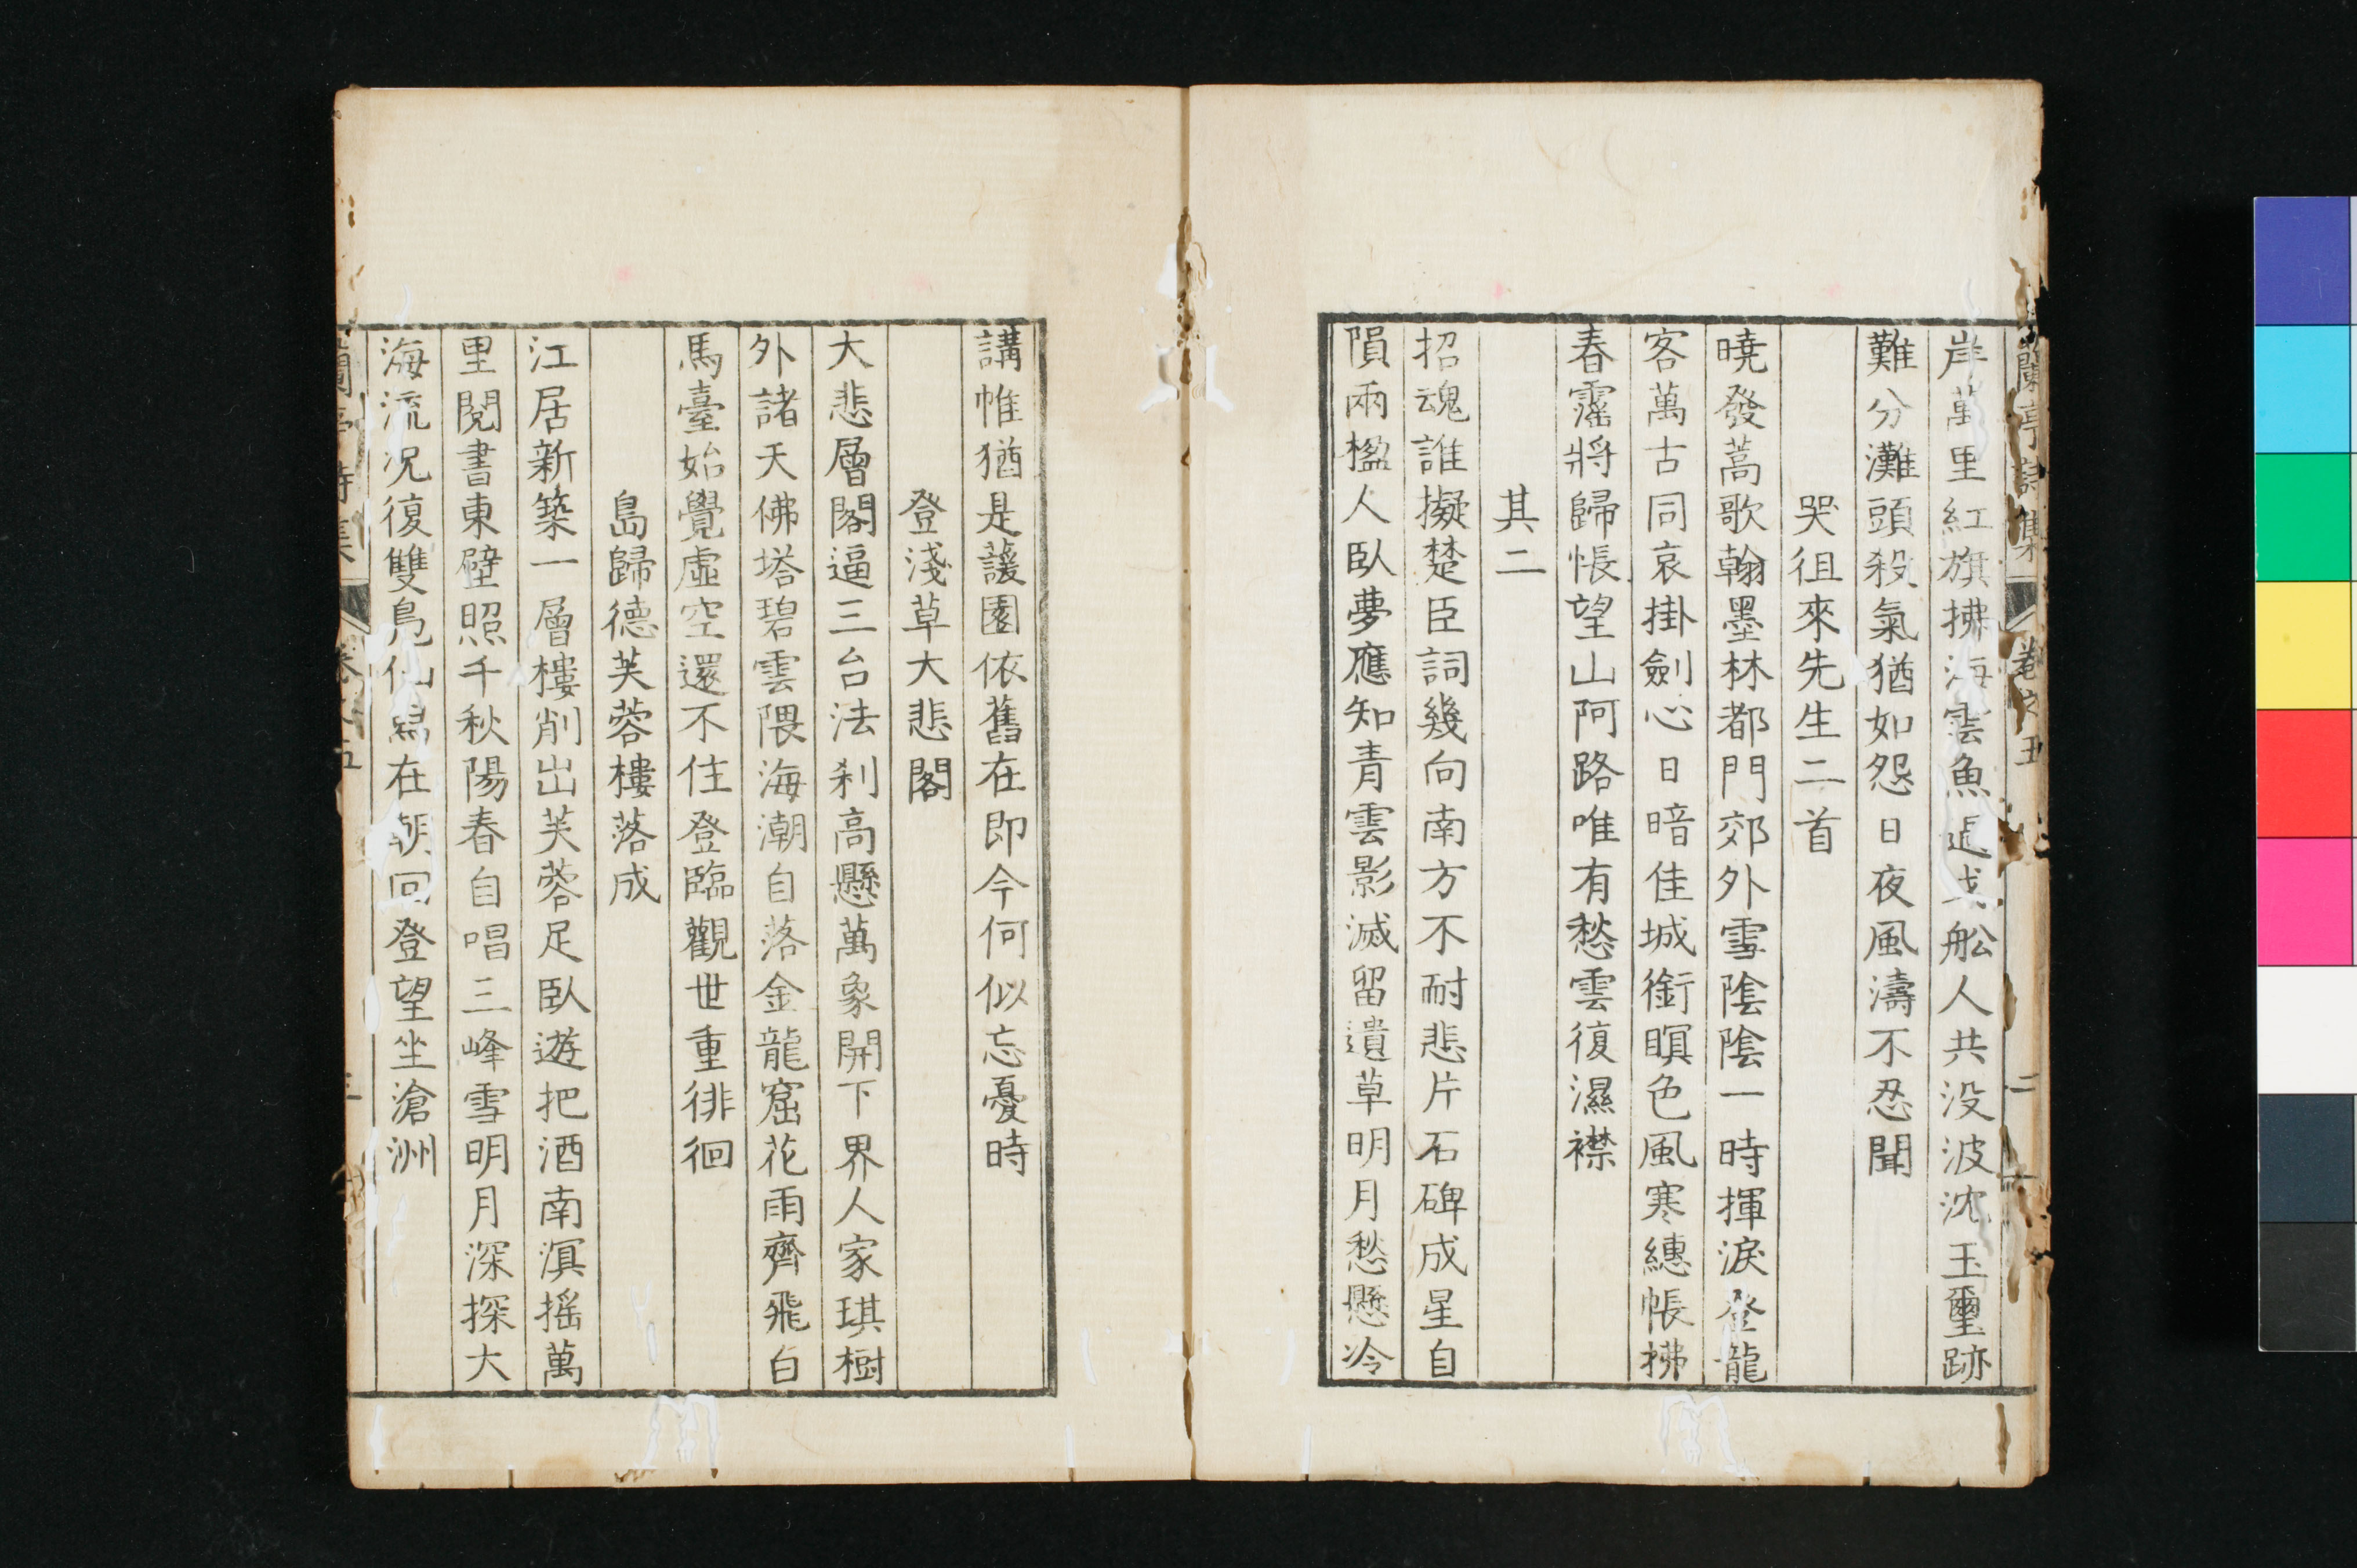 蘭亭詩集 卷之五 二
岸萬里紅旗拂海雲魚 戈舩人共没波沈玉璽跡
難分灘頭殺氣猶如怨日夜風濤不忍聞
哭徂來先生二首
曉發蒿歌翰墨林都門郊外雪陰陰一時揮淚登龍
客萬古同哀掛劍心日暗佳城銜暝色風寒繐帳拂
春霪將歸悵望山阿路唯有愁雲復濕襟
其二
招魂誰擬楚臣詞幾向南方不耐悲片石碑成星自
隕兩楹人臥夢應知青雲影滅留遺草明月愁懸冷
講帷猶是蘐園依舊在即今何似忘憂時
登淺草大悲閣
大悲層閣逼三台法刹高懸萬象開下界人家琪樹
外諸天佛塔碧雲隈海潮自落金龍窟花雨齊飛白
馬臺始覺虛空還不住登臨觀世重徘徊
島歸德芙蓉樓落成
江居新築一層樓削出芙蓉足臥遊把酒南溟搖萬
里閱書東壁照千秋陽春自唱三峰雪明月深探大
海流况復雙鳧仙舄在朝回登望坐滄洲
蘭亭詩集 卷之五 三